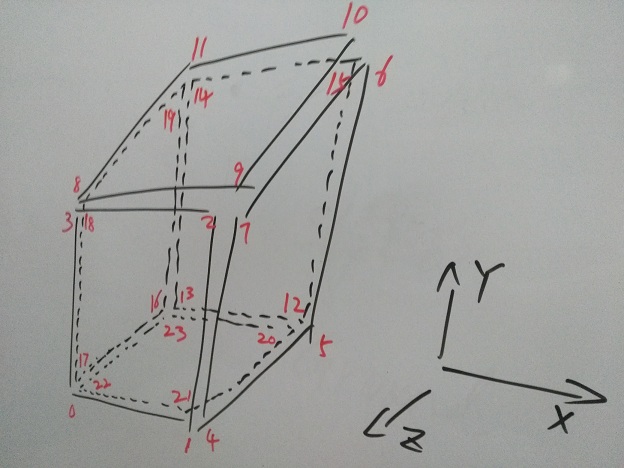 10
11
6
15
14
19
8
9
3
18
2
7
16
13
12
23
20
5
17
22
0
21
1
4
Y
X
Z